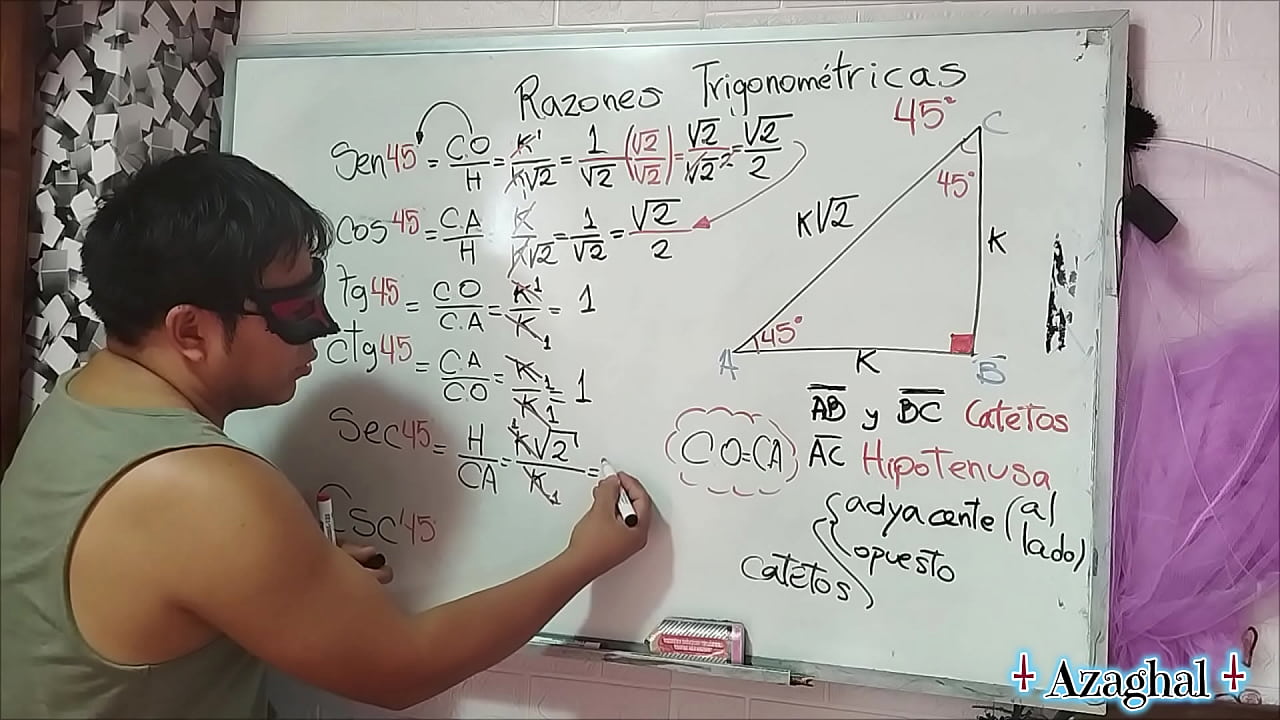 Razones Trigonométricas
Sen45 = C.O/H = K1/K√2 = 1/√2 (√2/√2) = √2/√2² = √2/2
Cos45 = C.A/H = K/K√2 = 1/√2 = √2/2
Tg45 = C.O/C.A = K1/K1 = 1
CTg45 = C.A/C.O = K1/K1 = 1
Sec45 = H/CA = K1√2/K1 =
Csc45
45°
C
45°
K√2
K
45°
A
K
B
AB y BC Catetos
CO=CA
AC Hipotenusa
Catetos
adyacente (al lado)
opuesto
Azaghal